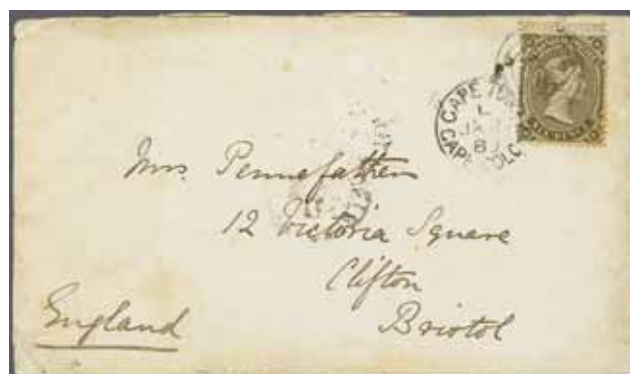 CAPE
L
JA
8
CAPE COLO
SIX PENCE
Mrs. Pennefather
12 Victoria Square
Clifton
Bristol
England